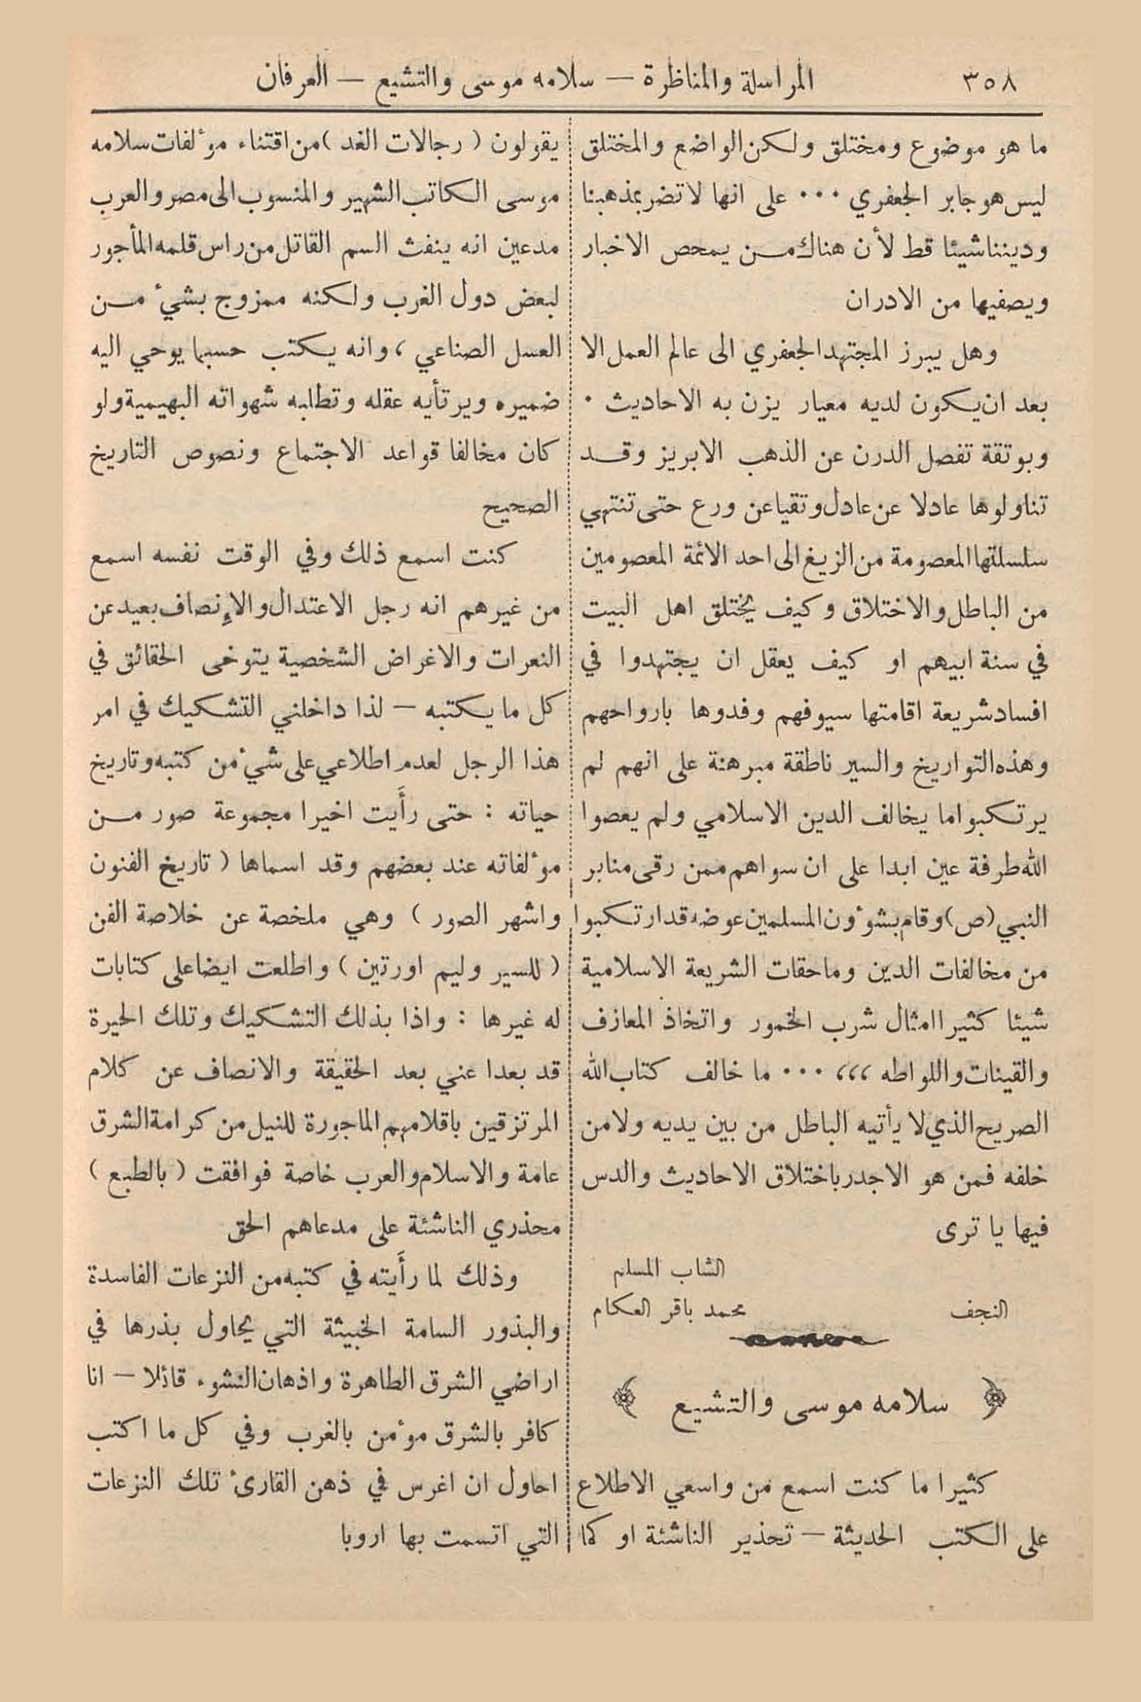 ٣٥٨ المراسلة والمناظرة — سلامه موسى والتشيع — العرفان
ما هو موضوع ومختلق ولكن الواضع والمختلق
ليس هو جابر الجعفري ٠٠٠ على انها لا تضر بمذهبنا
وديننا شيئا قط لأن هناك من يمحص الاخبار
ويصفيها من الادران
وهل يبرز المجتهد الجعفري الى عالم العمل الا
بعد ان يكون لديه معيار يزن به الاحاديث ٠
وبوتقة تفصل الدرن عن الذهب الابريز وقد
تناولوها عادلا عن عادل وتقيا عن ورع حتى تنتهي
سلسلتها المعصومة من الزيغ الى احد الائمة المعصومين
من الباطل والاختلاق وكيف يختلق اهل البيت
في سنة ابيهم او كيف يعقل ان يجتهدوا في
افساد شريعة اقامتها سيوفهم وفدوها بارواحهم
وهذه التواريخ والسير ناطقة مبرهنة على انهم لم
يرتكبوا ما يخالف الدين الاسلامي ولم يعصوا
الله طرفة عين ابدا على ان سواهم ممن رقى منابر
النبي (ص) وقام بشوٴون المسلمين عوضه قد ارتكبوا
من مخالفات الدين وماحقات الشريعة الاسلامية
شيئا كثيرا امثال شرب الخمور واتخاذ المعازف
والقينات واللواطه ،،، ٠٠٠ ما خالف كتاب الله
الصريح الذي لا يأتيه الباطل من بين يديه ولا من
خلفه فمن هو الاجدر باختلاق الاحاديث والدس
فيها يا ترى
الشاب المسلم
النجف محمد باقر العكام
سلامه موسى والتشيع
كثيرا ما كنت اسمع من واسعي الاطلاع
على الكتب الحديثة — تحذير الناشئة او كما
يقولون ( رجالات الغد ) من اقتناء موٴلفات سلامه
موسى الكاتب الشهير والمنسوب الى مصر والعرب
مدعين انه ينفث السم القاتل من راس قلمه المأجور
لبعض دول الغرب ولكنه ممزوج بشيٴ من
العسل الصناعي ، وانه يكتب حسبما يوحي اليه
ضميره ويرتأيه عقله وتطلبه شهواته البهيمية ولو
كان مخالفا قواعد الاجتماع ونصوص التاريخ
الصحيح
كنت اسمع ذلك وفي الوقت نفسه اسمع
من غيرهم انه رجل الاعتدال والإنصاف بعيد عن
النعرات والاغراض الشخصية يتوخى الحقائق في
كل ما يكتبه — لذا داخلني التشكيك في امر
هذا الرجل لعدم اطلاعي على شيٴ من كتبه وتاريخ
حياته : حتى رأَيت اخيرا مجموعة صور من
موٴلفاته عند بعضهم وقد اسماها ( تاريخ الفنون
واشهر الصور ) وهي ملخصة عن خلاصة الفن
( للسير وليم اورتين ) واطلعت ايضا على كتابات
له غيرها : واذا بذلك التشكيك وتلك الحيرة
قد بعدا عني بعد الحقيقة والانصاف عن كلام
المرتزقين باقلامهم الماجورة للنيل من كرامة الشرق
عامة والاسلام والعرب خاصة فوافقت ( بالطبع )
محذري الناشئة على مدعاهم الحق
وذلك لما رأَيته في كتبه من النزعات الفاسدة
والبذور السامة الخبيثة التي يحاول بذرها في
اراضي الشرق الطاهرة واذهان النشوء قائلا — انا
كافر بالشرق موٴمن بالغرب وفي كل ما اكتب
احاول ان اغرس في ذهن القارئ تلك النزعات
التي اتسمت بها اروبا